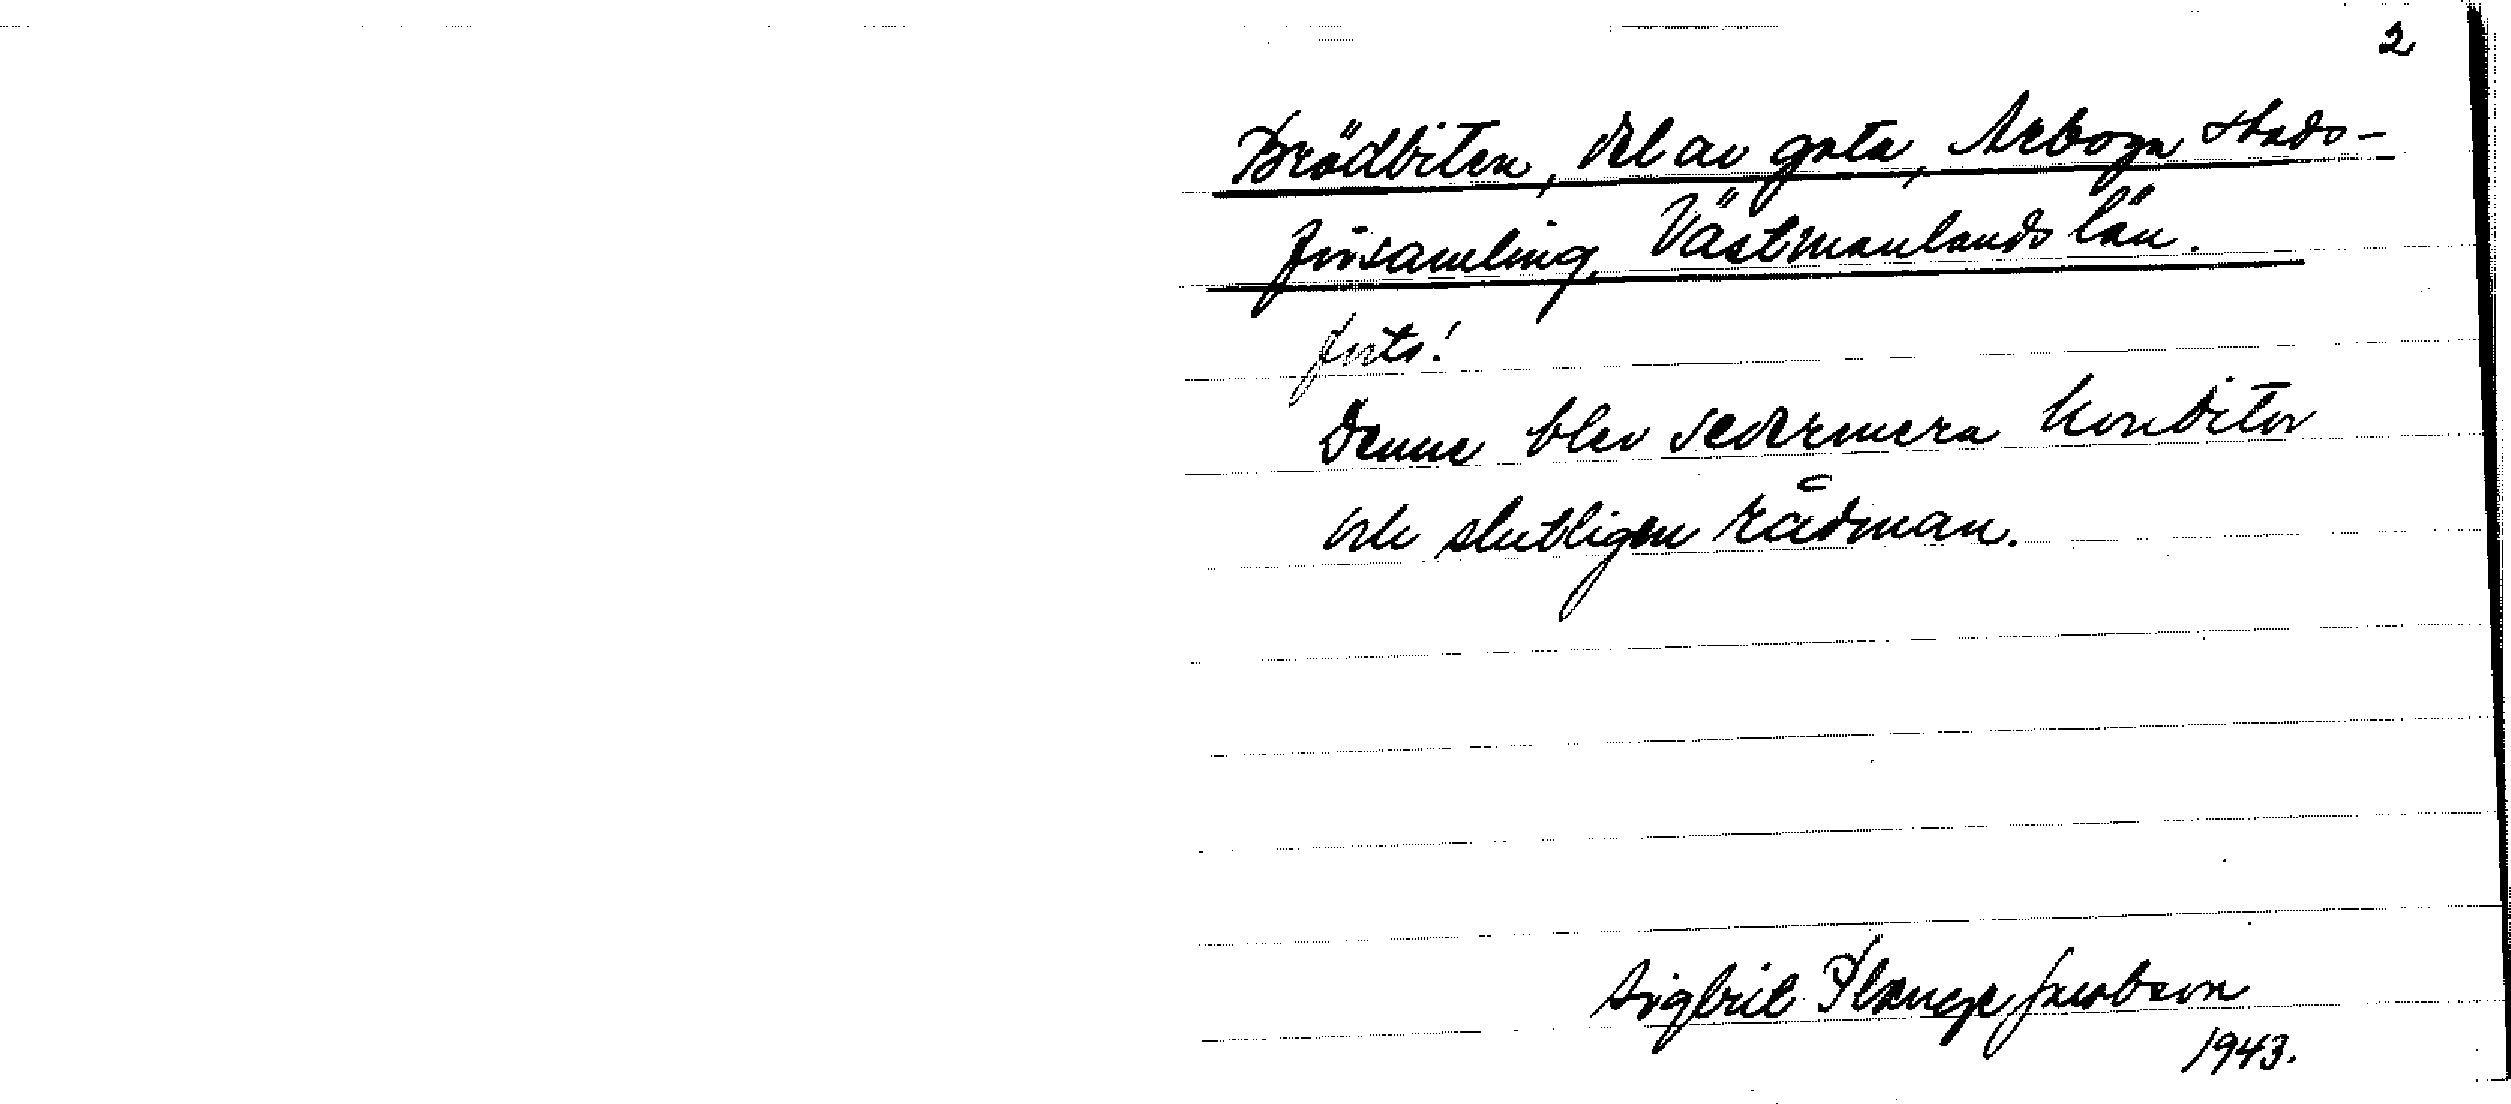 2
Brödbiten, del av gata, Arboga stads-
församling, Västmanlands län.
forts!
Denne blev sedermera konditor
och slutligen rådman.
Sigbrit Plænge Jacobson
1943.